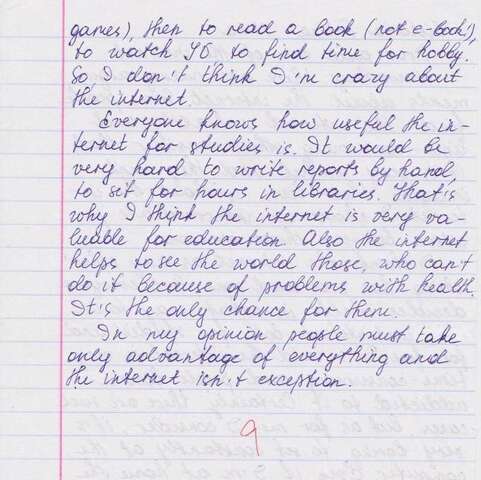 games), then to read a book (not e-book!),
to watch TV to find time for hobby.
So I don't think I'm crazy about
the internet.
Everyone knows how useful the in-
ternet for studies is. It would be
very hard to write reports by hand,
to sit for hours in libraries. That's
why I think the internet is very va-
luable for education. Also the internet
helps to see the world those, who can't
do it because of problems with health.
It's the only chance for them.
In my opinion people must take
only advantage of everything and
the internet isn't exception.
9